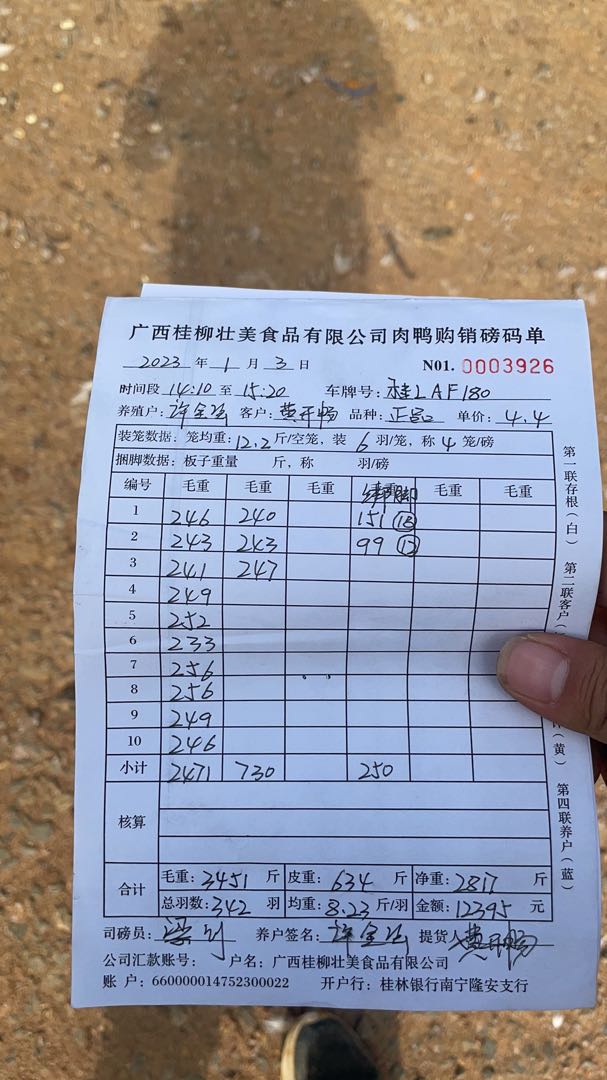 广西桂柳壮美食品有限公司肉鸭购销磅码单
2023 年 1 月 3 日 N01. 0003926
时间段 14:10 至 15:20 车牌号: 桂LAF180
养殖户: 许金 客户: 黄开畅 品种: 正品 单价: 4.4
装笼数据: 笼均重: 12.2 斤/空笼, 装 6 羽/笼, 称 4 笼/磅
捆脚数据: 板子重量 斤, 称 羽/磅
编号 毛重 毛重 毛重 绑脚 毛重 毛重
1 246 240 151 18
2 243 243 99 12
3 241 247
4 249
5 252
6 233
7 256
8 256
9 249
10 246
小计 2471 730 250
核算
合计 毛重: 3451 斤 皮重: 634 斤 净重: 2817 斤
总羽数: 342 羽 均重: 8.23 斤/羽 金额: 12395 元
司磅员: 养户签名: 许金 提货人 黄开畅
公司汇款账号: 户名: 广西桂柳壮美食品有限公司
账 户: 660000014752300022 开户行: 桂林银行南宁隆安支行
第一联存根(白) 第二联客户( (黄) 第四联养户(蓝)